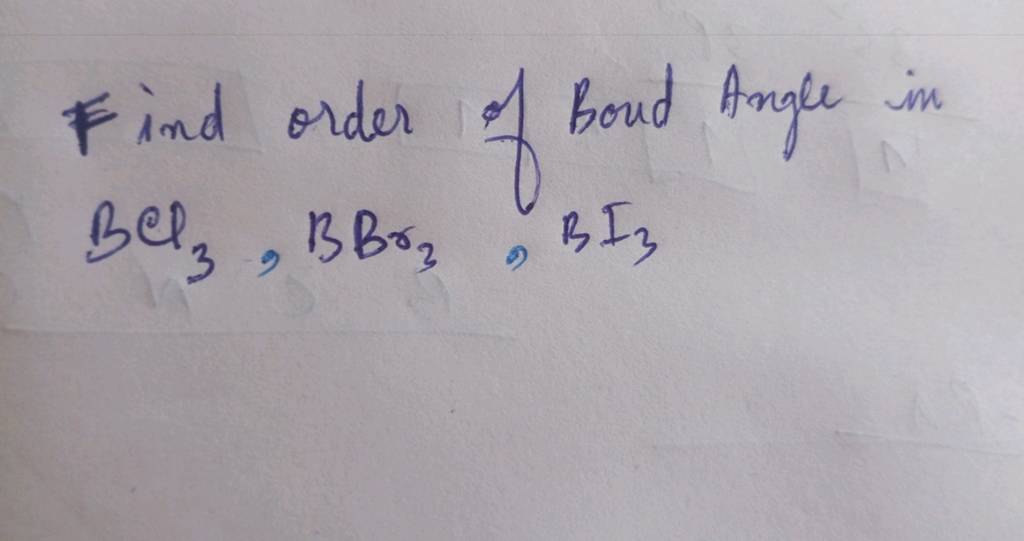 Find order of Bond Angle in
BCl₃, BBr₃, BI₃